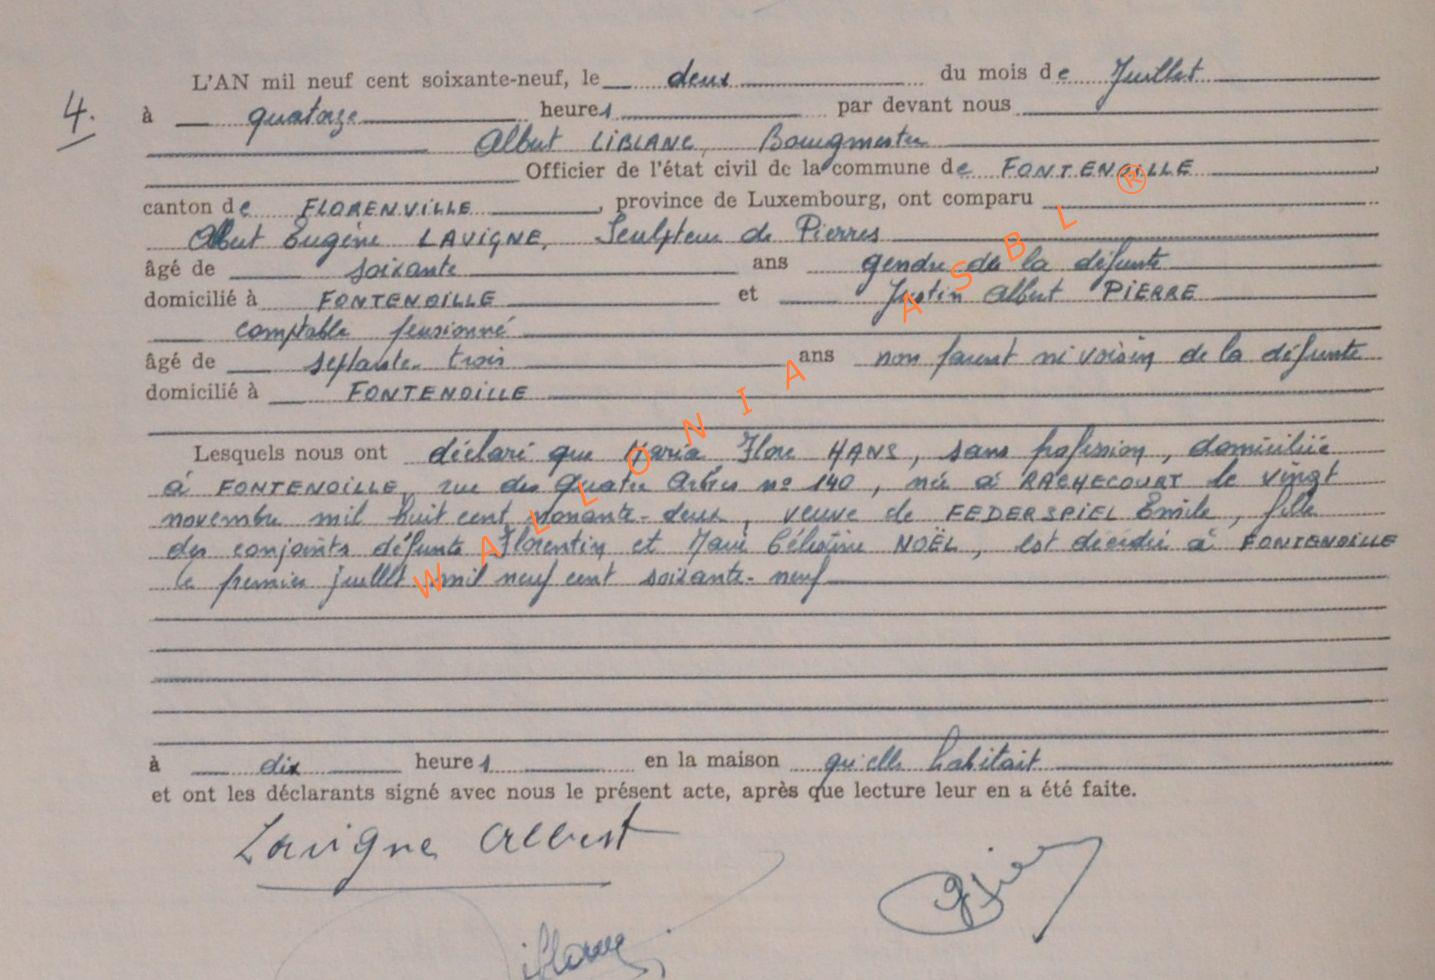 L'AN mil neuf cent soixante-neuf, le deux du mois de Juillet
4. à quatorze heures par devant nous
Albert LIBLANC, Bourgmestre
Officier de l'état civil de la commune de FONTENOILLE
canton de FLORENVILLE, province de Luxembourg, ont comparu
Albert Eugène LAVIGNE, Sculpteur de Pierres
âgé de soixante ans gendre de la défunte
domicilié à FONTENOILLE et Justin Albert PIERRE
comptable pensionné
âgé de septante trois ans non parent ni voisin de la défunte
domicilié à FONTENOILLE
Lesquels nous ont déclaré que Maria Flore HANS, sans profession, domiciliée
à FONTENOILLE, rue des Quatre Arbres n° 140, née à RACHECOURT le vingt
novembre mil huit cent nonante-deux, veuve de FEDERSPIEL Emile, fille
des conjoints défunts Florentin et Marie Célestine NOËL, est décédée à FONTENOILLE
le premier juillet mil neuf cent soixante-neuf
à dix heures en la maison qu'elle habitait
et ont les déclarants signé avec nous le présent acte, après que lecture leur en a été faite.
Lavigne Albert
WALLONIA ASBL ®